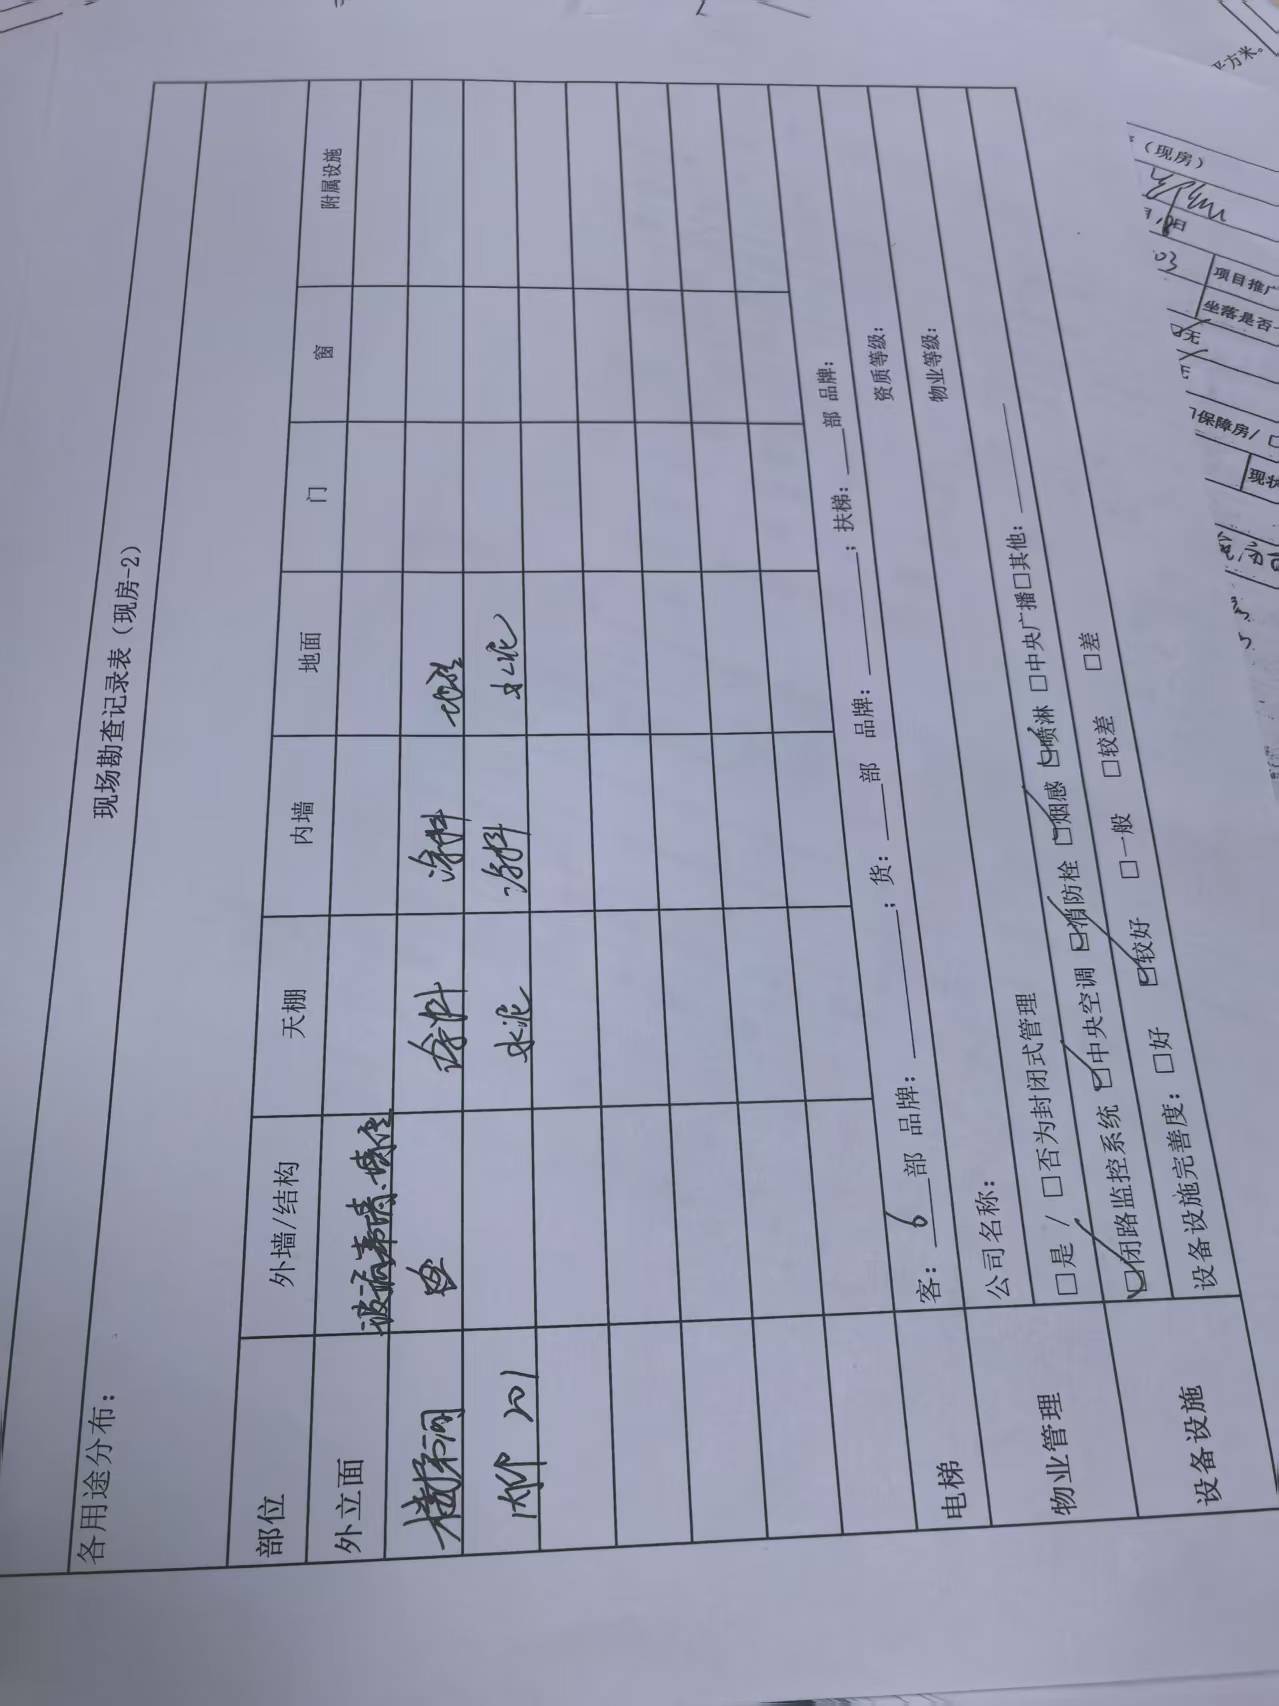 现场勘查记录表（现房-2）
各用途分布：
部位 外墙/结构 天棚 内墙 地面 门 窗 附属设施
外立面 玻璃幕墙、
楼梯间 涂料 涂料 地砖
内部 201 水泥 涂料 水泥
电梯 客：6部 品牌： ；货： 部 品牌： ；扶梯： 部 品牌：
物业管理 公司名称： 资质等级：
□是 / □否为封闭式管理 物业等级：
设备设施 ☑闭路监控系统 ☑中央空调 ☑消防栓 ☑烟感 ☑喷淋 □中央广播□其他：
设备设施完善度：□好 ☑较好 □一般 □较差 □差
平方米。
（现房）
日
03 项目推广
坐落是否
无
保障房/ □
现状